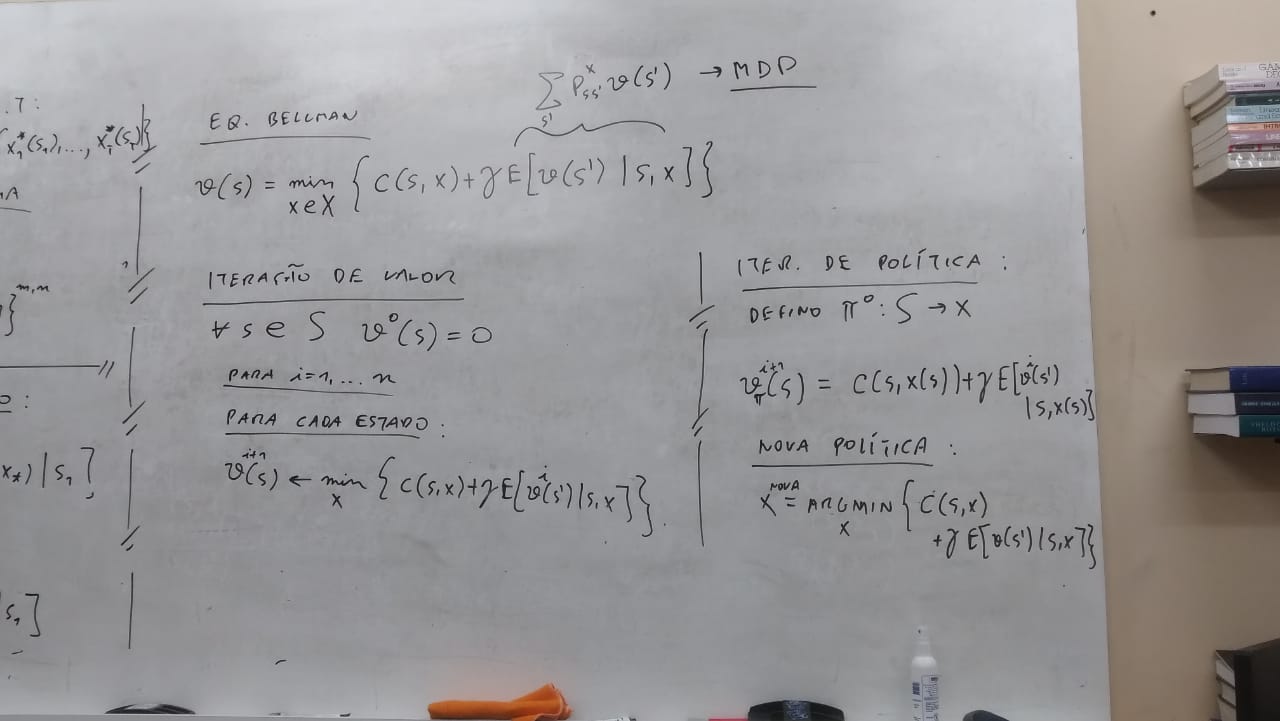 .T:
x₁*(s₁),..., x_T*(s_T)}
}^{m,n}
x_*) | s₁]
s₁]
Σ_{s'} P^x_{ss'} v(s') → MDP
EQ. BELLMAN
v(s) = min_{x∈X} { C(s,x) + γE[v(s') | s,x] }
ITERAÇÃO DE VALOR
∀ s ∈ S v⁰(s) = 0
PARA i=1,... n
PARA CADA ESTADO:
v^{i+1}(s) ← min_x { C(s,x) + γE[v^i(s') | s,x] }.
ITER. DE POLÍTICA:
DEFINO π⁰: S → X
v_π^{i+1}(s) = C(s,x(s)) + γ E[v^i(s')
| s,x(s)}
NOVA POLÍTICA:
x^{NOVA} = ARGMIN_x { C(s,x)
+ γ E[v(s') | s,x] }